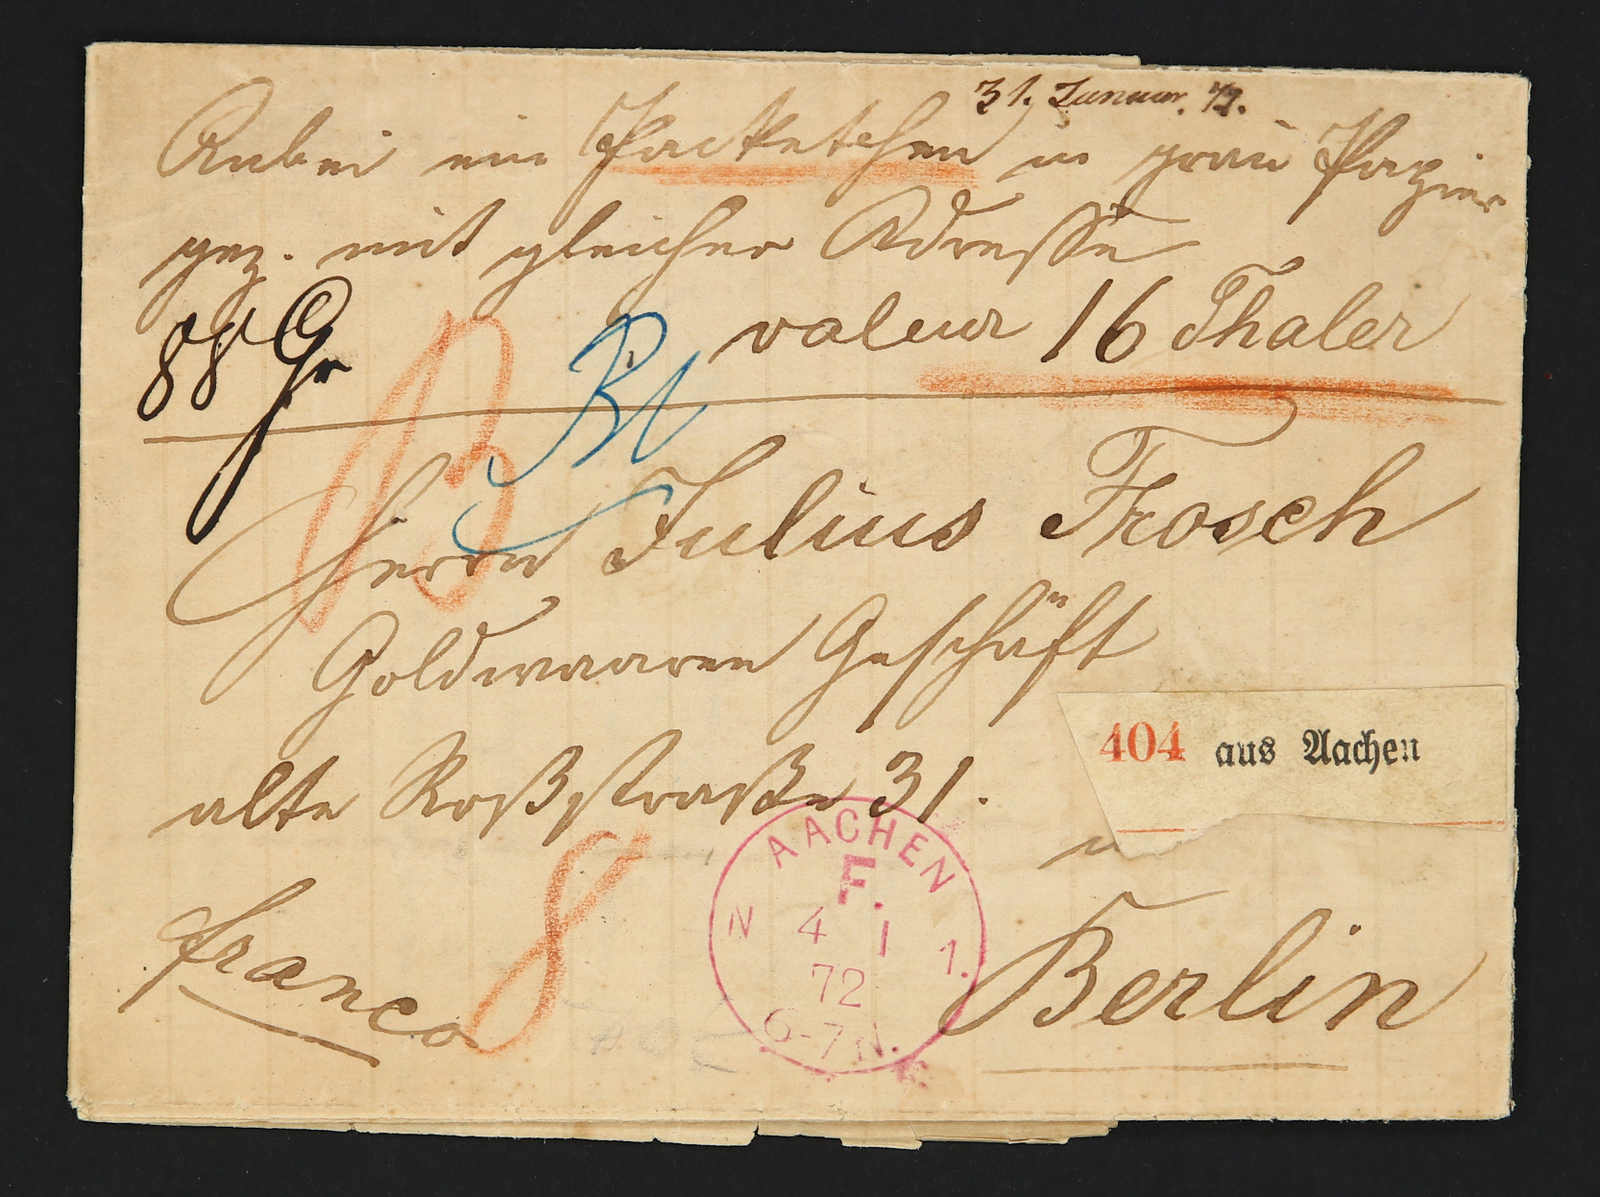 31. Januar. 72.
Anbei ein Packetchen in grau Papier
gez. mit gleicher Adresse
88 Gr
valeur 16 Thaler
Herrn Julius Frosch
Goldwaaren Geschäft
alte Roßstraße 31.
404 aus Aachen
Berlin
franco
8
AACHEN
F.
N 4 I 1.
72
6-7 N.